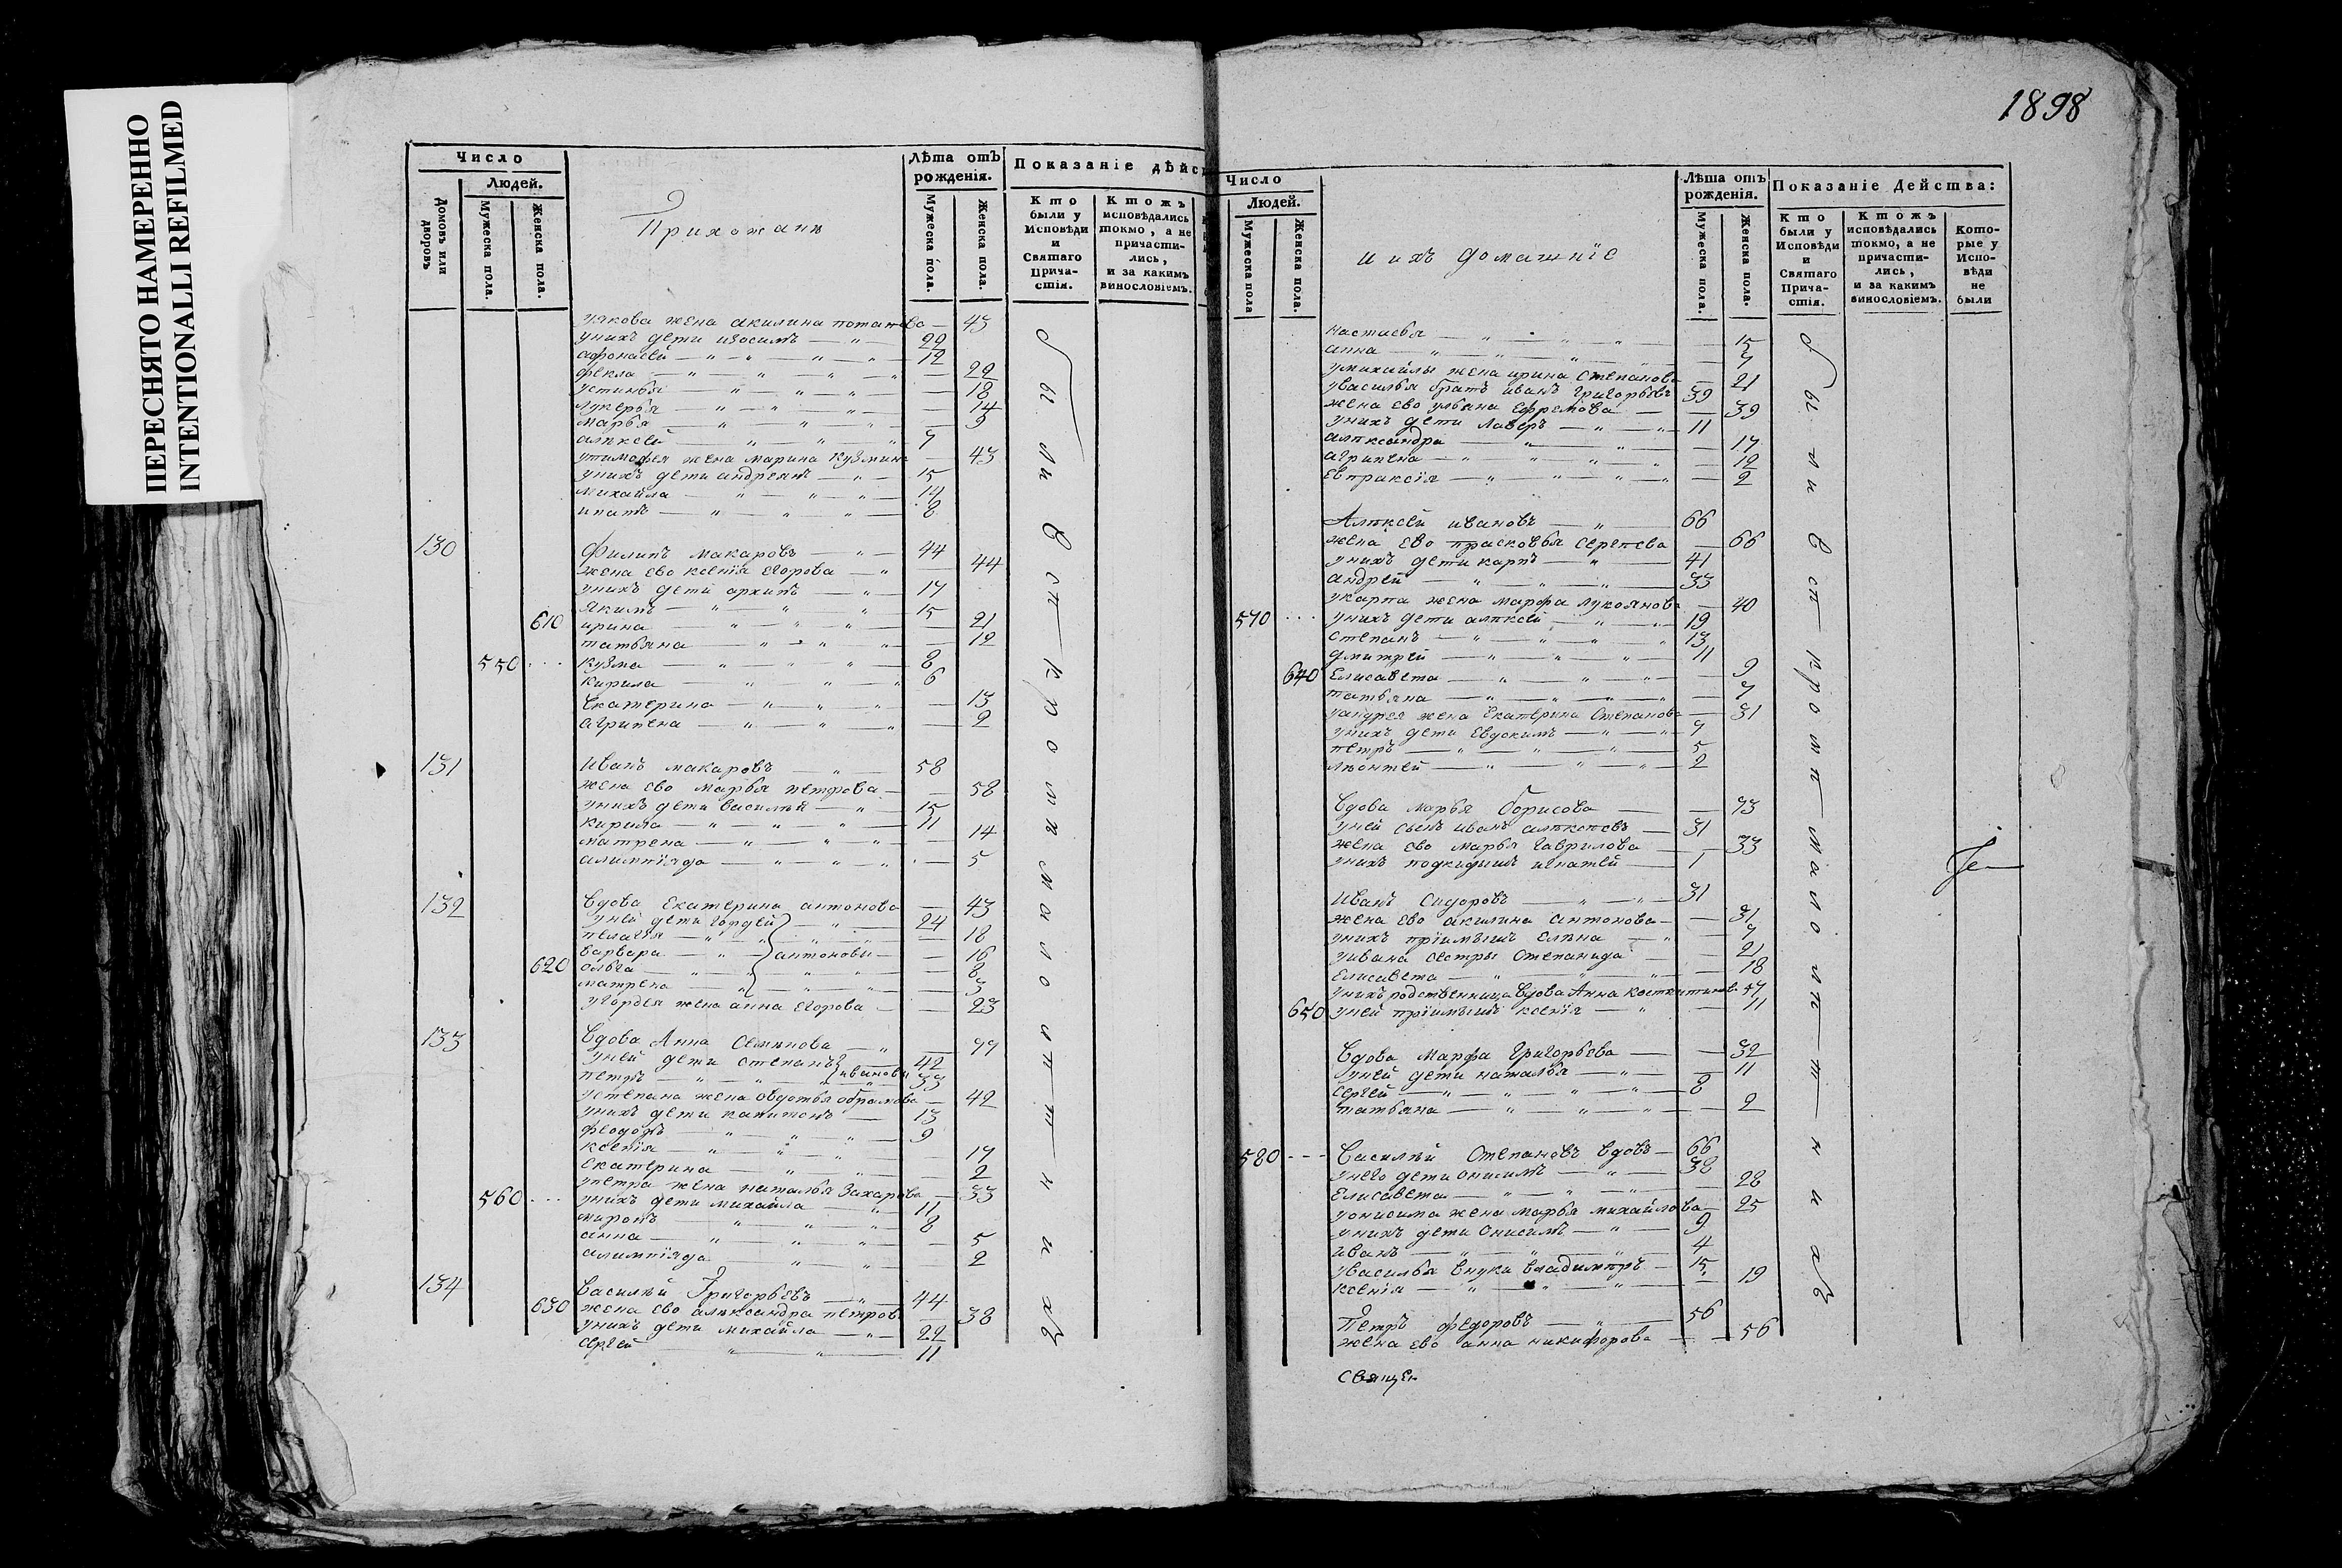 ПЕРЕСНЯТО НАМЕРЕННО
INTENTIONALLI REFILMED
1898
Число
Людей.
Домовъ или дворовъ
Мужеска пола.
Женска пола.
Прихожанѣ
Лѣта отъ рожденія.
Мужеска пола.
Женска пола.
Показаніе дѣйс
Кто были у Исповѣди и Святаго Прича-стія.
Ктожъ исповѣдались токмо, а не причасти-лись, и за какимъ винословіемъ.
уякова жена акилина потапова — 43
унихъ дети изосимъ — 22
афонасей — 12
фекла — 22
устинья — 18
лукерья — 14
марья — 9
алѣксей — 7
утимофея жена марина кузмина — 43
унихъ дети андреянъ — 15
михайла — 14
ипатъ — 8
130 Филипъ макаровъ — 44
жена ево ксенія егорова — 44
унихъ дети архипъ — 17
якимъ — 15
610 ирина — 21
татьяна — 12
550 кузма — 8
кирила — 6
екатерина — 13
агрипена — 2
131 Иванъ макаровъ — 58
жена ево марья петрова — 58
унихъ дети василѣй — 15
кирила — 11
матрена — 14
алимпіяда — 5
132 Вдова Екатерина антонова — 43
уней дети гордей — 24
пелагѣя — 18
варвара — антоновы — 16
620 ольга — 8
матрена — 3
угордея жена анна егорова — 23
133 Вдова Анна Семѣнова — 77
уней дети степанъ — 42
петръ — ивановы — 33
устепана жена овдотья обрамова — 42
унихъ дети капитонъ — 13
феодоръ — 9
ксенія — 17
екатерина — 2
упетра жена наталья Захарова — 33
560 унихъ дети михайла — 11
миронъ — 8
анна — 5
алимпіяда — 2
134 Василѣй Григорьевъ — 44
630 жена ево алѣксандра петрова — 38
унихъ дети михайла — 22
сергей — 11
были въ исп... кромѣ малолѣтнихъ
Число
Людей.
Мужеска пола
Женска пола.
и ихъ домашніе
Лѣта отъ рожденія.
Мужеска пола.
Женска пола.
Показаніе Действа:
Кто были у Исповѣди и Святаго Прича-стія.
Ктожъ исповѣдались токмо, а не причасти-лись, и за какимъ винословіемъ.
Кото-рые у Испо-вѣди не были
настасья — 15
анна — 7
умихайлы жена ирина степанова — 21
увасилья братъ иванъ григорьевъ 39
жена ево ульяна ефремова — 39
унихъ дети лаверъ — 11
алѣксандра — 17
агрипена — 12
евпраксія — 2
Алѣксей ивановъ — 66
жена ево прасковья сергеева — 66
унихъ дети карпъ — 41
андрей — 33
укарпа жена марфа лукоянова — 40
570 унихъ дети алѣксей — 19
степанъ — 13
дмитрей — 11
640 Елисавета — 9
татьяна — 7
уандрея жена Екатерина Степанова — 31
унихъ дети Евдокимъ — 7
петръ — 5
лѣонтей — 2
Вдова марья борисова — 73
уней сынъ иванъ алѣксѣевъ — 31
жена ево марья гаврилова — 33
унихъ подкидышъ игнатей — 1
Иванъ Сидоровъ — 31
жена ево акилина антонова — 31
унихъ пріимышъ елѣна — 7
уивана сестры степанида — 21
Елисавета — 18
унихъ родственница вдова Анна 57
650 уней пріимышъ ксенія — 11
Вдова Марфа Григорьева — 32
уней дети наталья — 11
сергей — 8
татьяна — 2
580 Василѣй Степановъ вдовъ — 66
унего дети онисимъ — 38
Елисавета — 28
уонисима жена марья михайлова — 25
унихъ дети Онисимъ — 9
иванъ — 4
увасилья внуки владимѣръ — 15
ксенія — 19
Петръ федоровъ — 56
жена ево анна никифорова — 56
были въ исп... кромѣ малолѣтнихъ
Свящеn